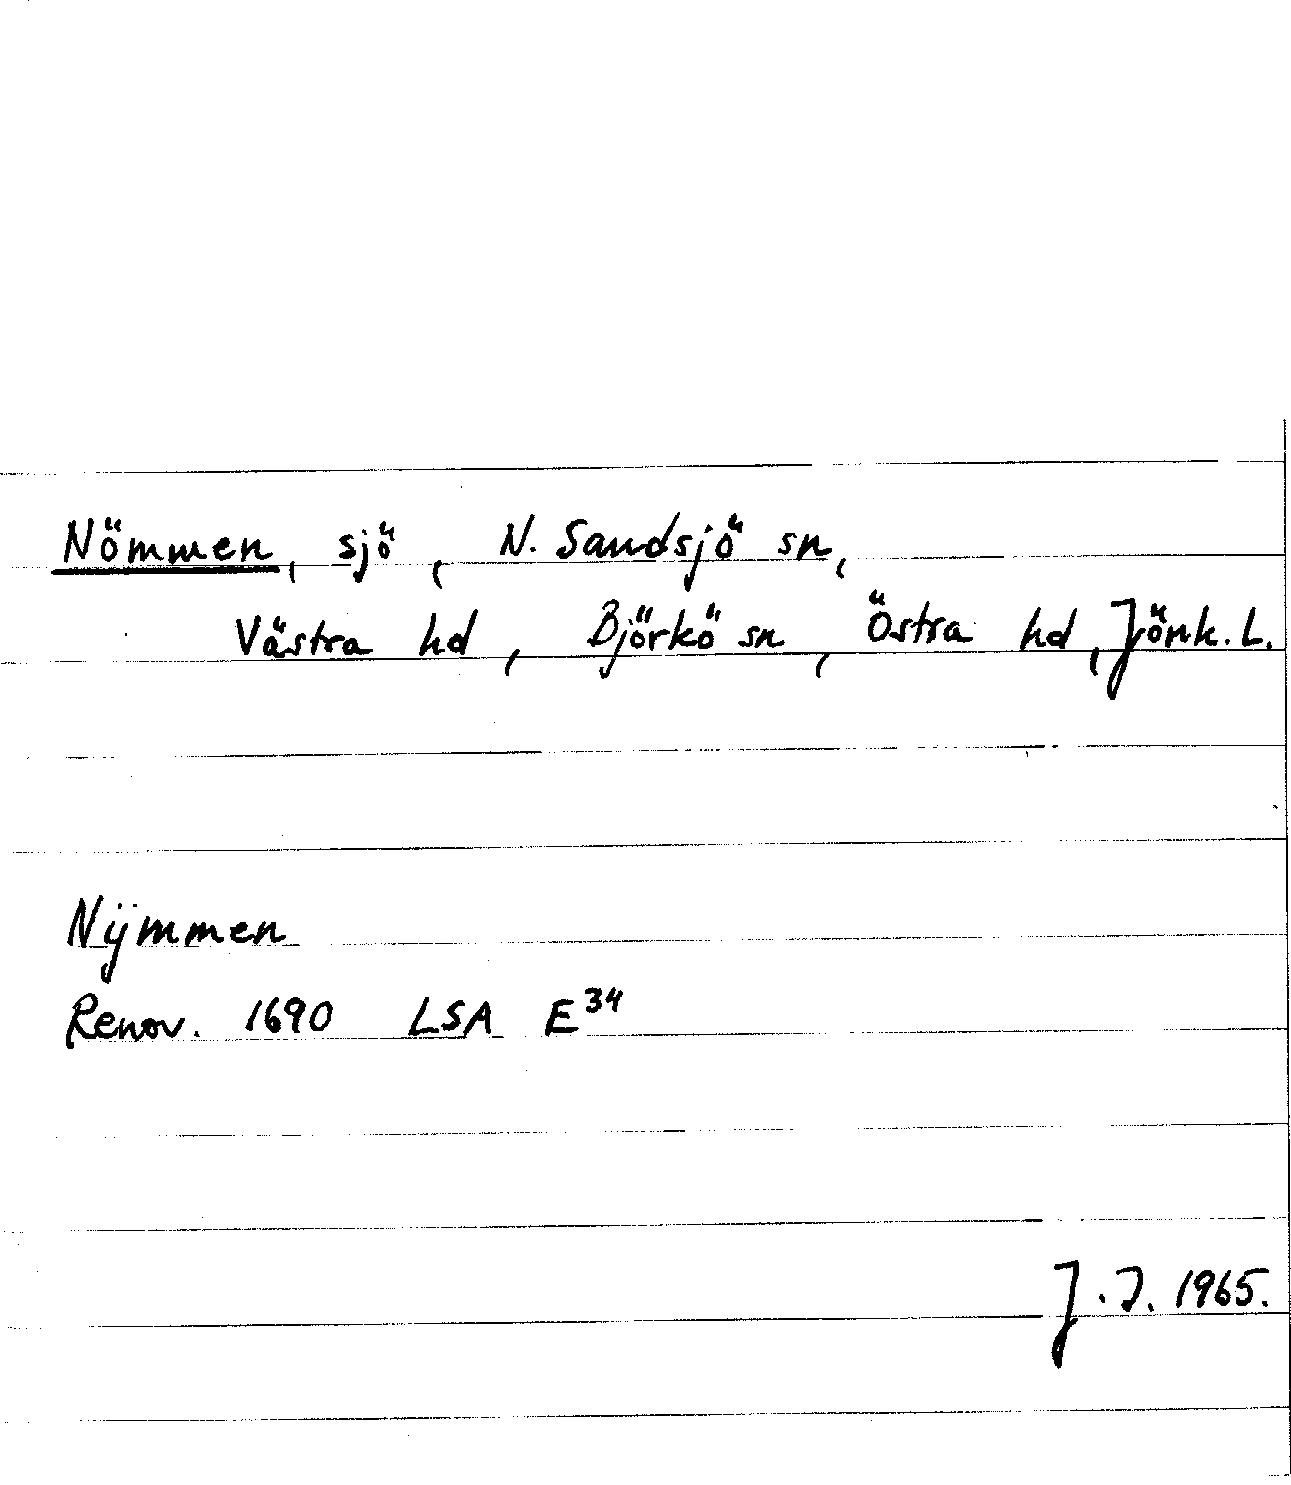 Nömmen, sjö, N. Sandsjö sn,
Västra hd, Björkö sn, Östra hd, Jönk. L.
Nÿmmen
Renov. 1690 LSA E³⁴
J. I. 1965.